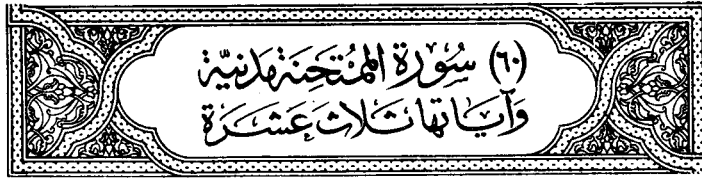 (٦٠) سُورَة المُمْتَحِنَة مَدَنيَّة
وَآيَاتها ثَلَاث عَشَرَة